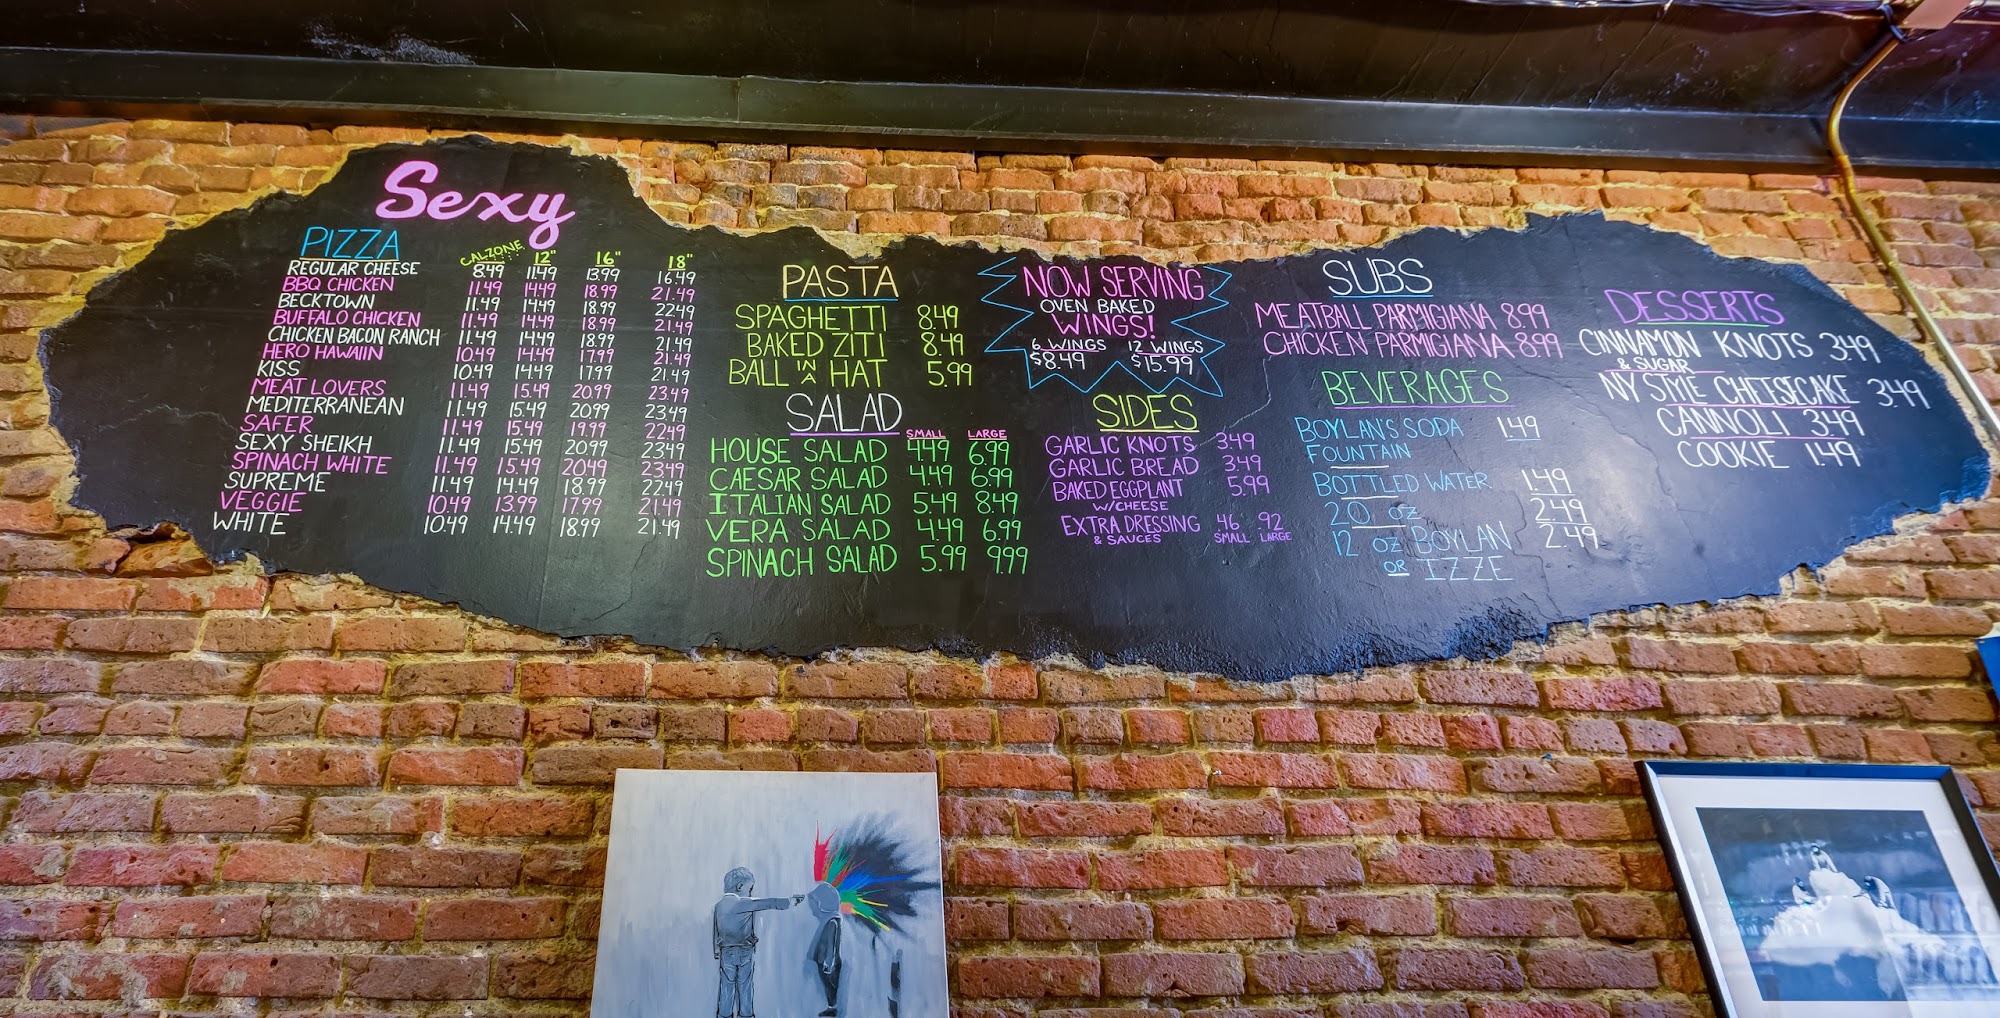 Sexy
PIZZA CALZONE 12" 16" 18"
REGULAR CHEESE 8.49 11.49 13.99 16.49
BBQ CHICKEN 11.49 14.49 18.99 21.49
BECKTOWN 11.49 14.49 18.99 22.49
BUFFALO CHICKEN 11.49 14.49 18.99 21.49
CHICKEN BACON RANCH 11.49 14.49 18.99 21.49
HERO HAWAIIN 10.49 14.49 17.99 21.49
KISS 10.49 14.49 17.99 21.49
MEAT LOVERS 11.49 15.49 20.99 23.49
MEDITERRANEAN 11.49 15.49 20.99 23.49
SAFER 11.49 15.49 19.99 22.49
SEXY SHEIKH 11.49 15.49 20.99 23.49
SPINACH WHITE 11.49 15.49 20.49 23.49
SUPREME 11.49 14.49 18.99 22.49
VEGGIE 10.49 13.99 17.99 21.49
WHITE 10.49 14.49 18.99 21.49
PASTA
SPAGHETTI 8.49
BAKED ZITI 8.49
BALL IN A HAT 5.99
SALAD SMALL LARGE
HOUSE SALAD 4.49 6.99
CAESAR SALAD 4.49 6.99
ITALIAN SALAD 5.49 8.49
VERA SALAD 4.49 6.99
SPINACH SALAD 5.99 9.99
NOW SERVING
OVEN BAKED
WINGS!
6 WINGS 12 WINGS
$8.49 $15.99
SIDES
GARLIC KNOTS 3.49
GARLIC BREAD 3.49
BAKED EGGPLANT 5.99
W/CHEESE
EXTRA DRESSING .46 .92
& SAUCES SMALL LARGE
SUBS
MEATBALL PARMIGIANA 8.99
CHICKEN PARMIGIANA 8.99
BEVERAGES
BOYLAN'S SODA 1.49
FOUNTAIN
BOTTLED WATER 1.49
20 oz 2.49
12 oz BOYLAN 2.49
OR IZZE
DESSERTS
CINNAMON KNOTS 3.49
& SUGAR
NY STYLE CHEESECAKE 3.49
CANNOLI 3.49
COOKIE 1.49